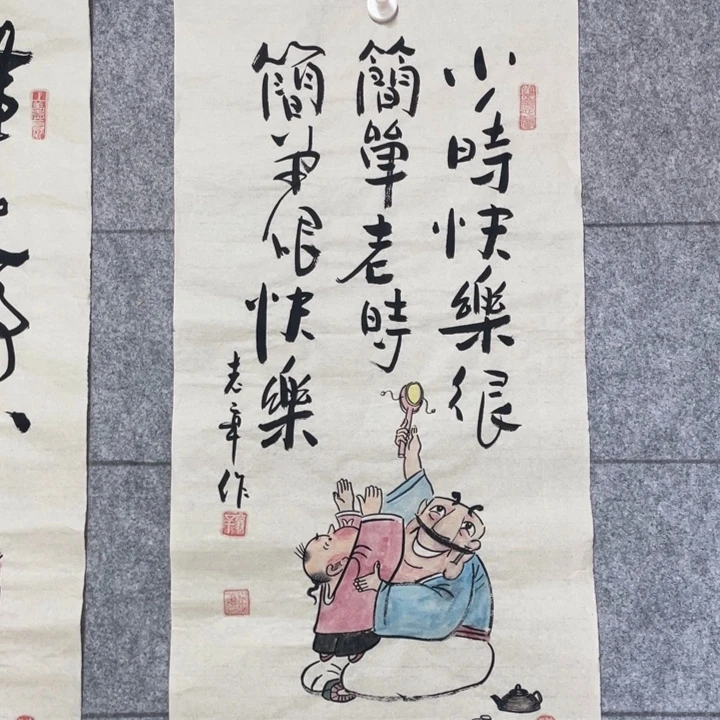 少時快樂很
簡單老時
簡單很快樂
志章作